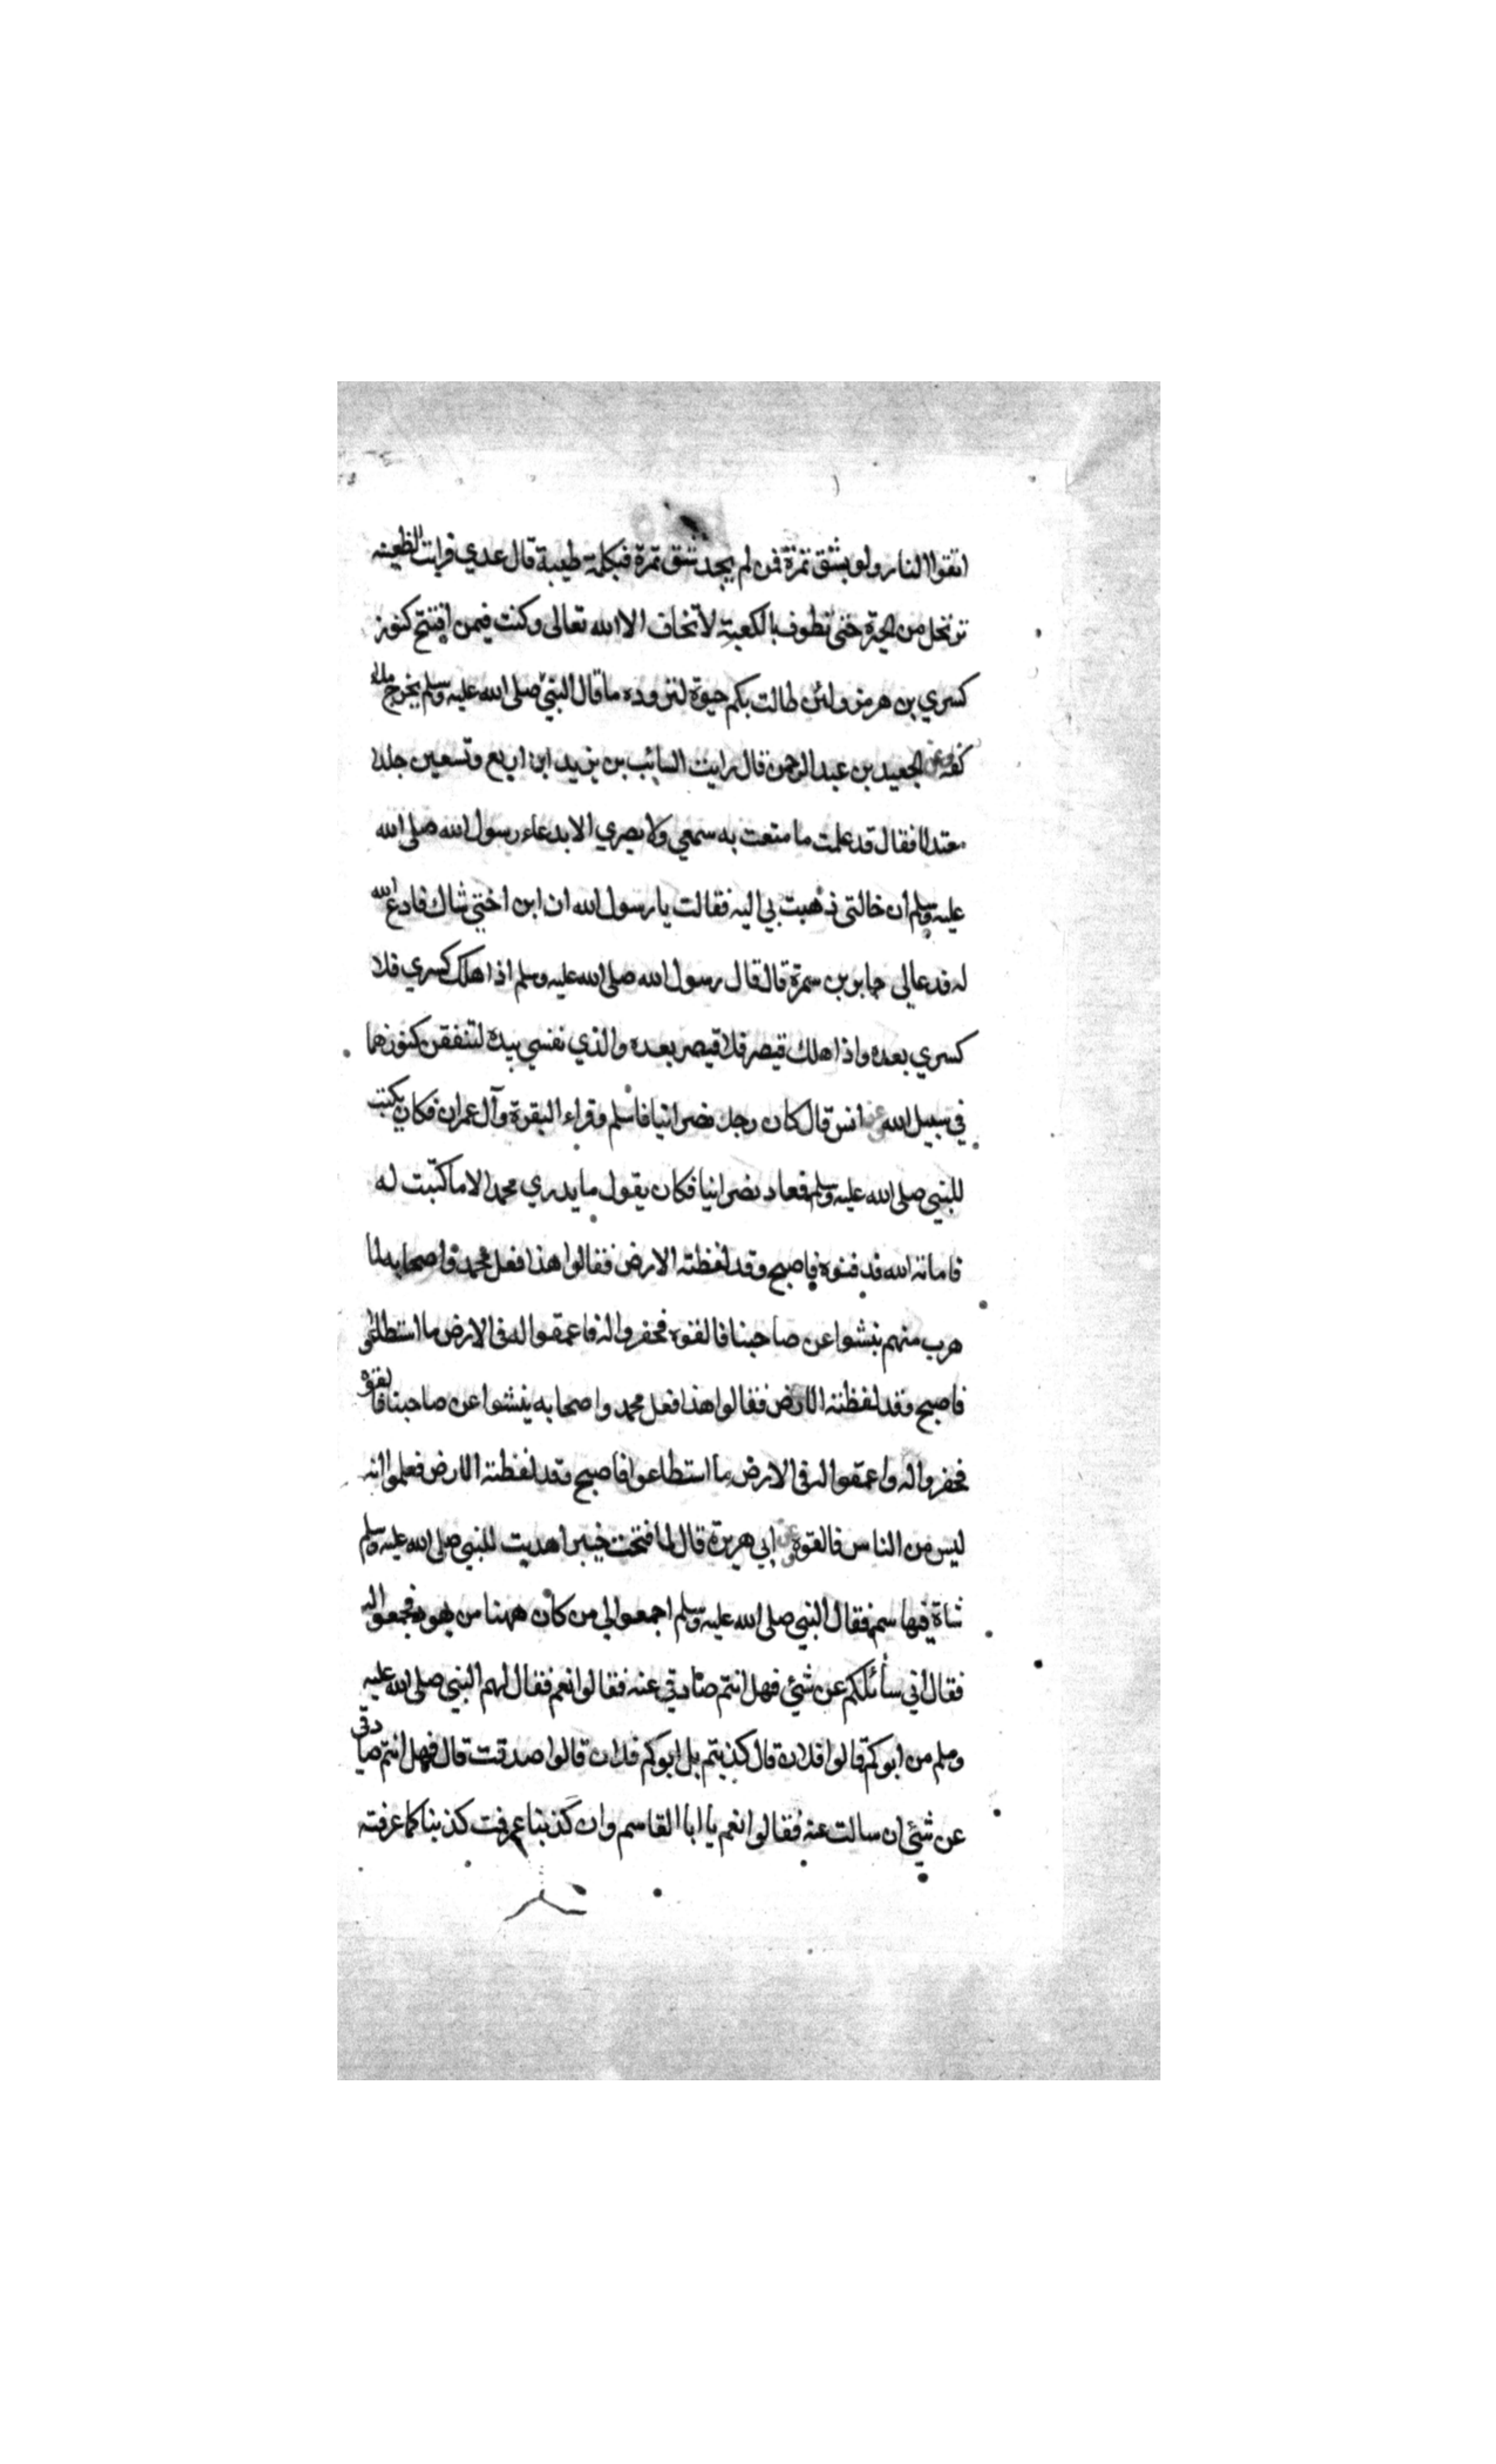 اتقوا النار ولو بشق تمرة فمن لم يجد شق تمرة فبكلمة طيبة قال عدي فرايت الظعينه
ترتحل من الحيرة حتى تطوف بالكعبة لا تخاف الا الله تعالى وكنت فيمن افتتح كنوز
كسري بن هرمز ولئن طالت بكم حيوة لتروده ما قال النبي صلى الله عليه وسلم يخرج ملء
كفه عن الجعيد بن عبد الرحمن قال رايت السائب بن يزيد ابن اربع وتسعين جلدا
معتدلا فقال قد علمت ما متعت به سمعي ولا بصري الا بدعاء رسول الله صلى الله
عليه وسلم ان خالتي ذهبت بي اليه فقالت يا رسول الله ان ابن اختي شاك فادع الله
له فدعا لي جابر بن سمرة قال قال رسول الله صلى الله عليه وسلم اذا هلك كسري فلا
كسري بعده واذا هلك قيصر فلا قيصر بعده والذي نفسي بيده لتنفقن كنوزهما
في سبيل الله عن انس قال كان رجل نصرانيا فاسلم وقراء البقرة وآل عمران فكان يكتب
للنبي صلى الله عليه وسلم فعاد نصرانيا فكان يقول ما يدري محمد الا ما كتبت له
فاماته الله فدفنوه فاصبح وقد لفظته الارض فقالوا هذا فعل محمد واصحابه لما
هرب منهم نبشوا عن صاحبنا فالقوه فحفروا له فاعمقوا له في الارض ما استطاعوا
فاصبح وقد لفظته الارض فقالوا هذا فعل محمد واصحابه ينشوا عن صاحبنا فالقوه
فحفروا له واعمقوا له في الارض ما استطاعوا فاصبح وقد لفظته الارض فعلموا انه
ليس من الناس فالقوه عن ابي هريرة قال لما فتحت خيبر اهديت للنبي صلى الله عليه وسلم
شاة فيها سم فقال النبي صلى الله عليه وسلم اجمعوا لي من كان ههنا من يهود فجمعوا اليه
فقال اني سائلكم عن شئي فهل انتم صادقي عنه فقالوا نعم فقال لهم النبي صلى الله عليه
وسلم من ابوكم قالوا فلان قال كذبتم بل ابوكم فلان قالوا صدقت قال فهل انتم صادقي
عن شئي ان سالت عنه فقالوا نعم يا ابا القاسم وان كذبنا عرفت كذبنا كما عرفته